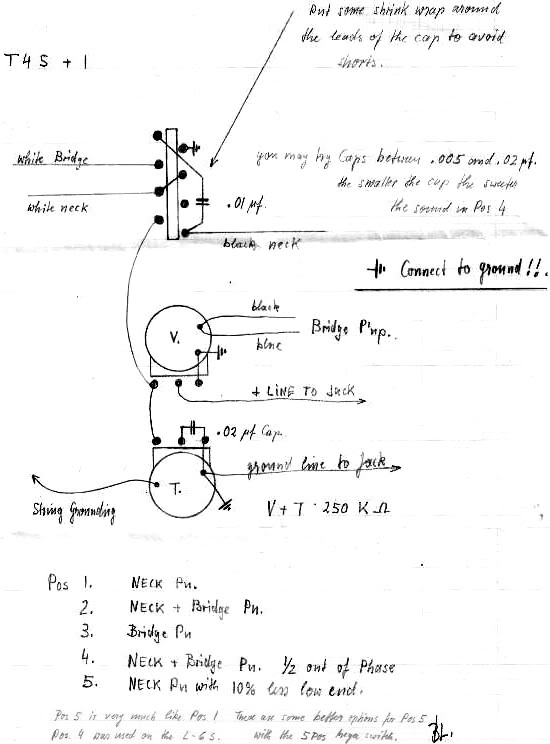 Put some shrink wrap around
the leads of the cap to avoid
shorts.
T4S + 1
white Bridge
you may try Caps between .005 and .02 µf.
the smaller the cap the sweeter
the sound in Pos 4
white neck
.01 µf.
black neck
Connect to ground!!.
black
V.
Bridge P'up..
blue
+ LINE TO Jack
.02 µf Cap.
ground line to Jack
T.
String Grounding
V + T · 250 K Ω
Pos 1. NECK Pu.
2. NECK + Bridge Pu.
3. Bridge Pu
4. NECK + Bridge Pu. 1/2 out of Phase
5. NECK Pu with 10% less low end.
Pos 5 is very much like Pos 1 There are some better options for Pos 5
Pos. 4 was used on the L-6 S. with the 5 Pos mega switch.